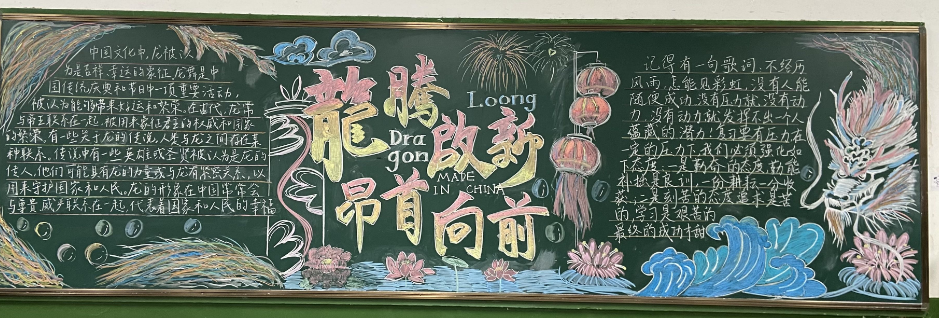 中国文化中,龙被认
为是吉祥、幸运的象征,龙舞是中
国传统庆典和节日中一项重要活动,
被认为能够带来好运和繁荣。在古代,龙常
与帝王联系在一起,被用来象征君主的权威和国家
的繁荣。有一些关于龙的传说,人类与龙之间存在某
种联系。传说中有一些英雄或圣贤被认为是龙的
传人,他们可能具有龙的力量或与龙有
用来守护国家和人民。龙的形象在中国常常会
与尊贵、威严联系在一起,代表着国家和人民的幸福
龍騰
Loong
Dra
gon
啟新
MADE
IN CHINA
昂首
向前
记得有一句歌词,不经历
风雨,怎能见彩虹,没有人能
随便成功,没有压力就没有动
力,没有动力就发挥不出一个人
蕴藏的潜力!复习要有压力在
一定的压力下,我们必须强化如
下态度:一是勤俗的态度,勤能
补拙是良训,一份耕耘一分收
获,二是刻苦的态度
的,学习是很苦的
最终的成功才甜